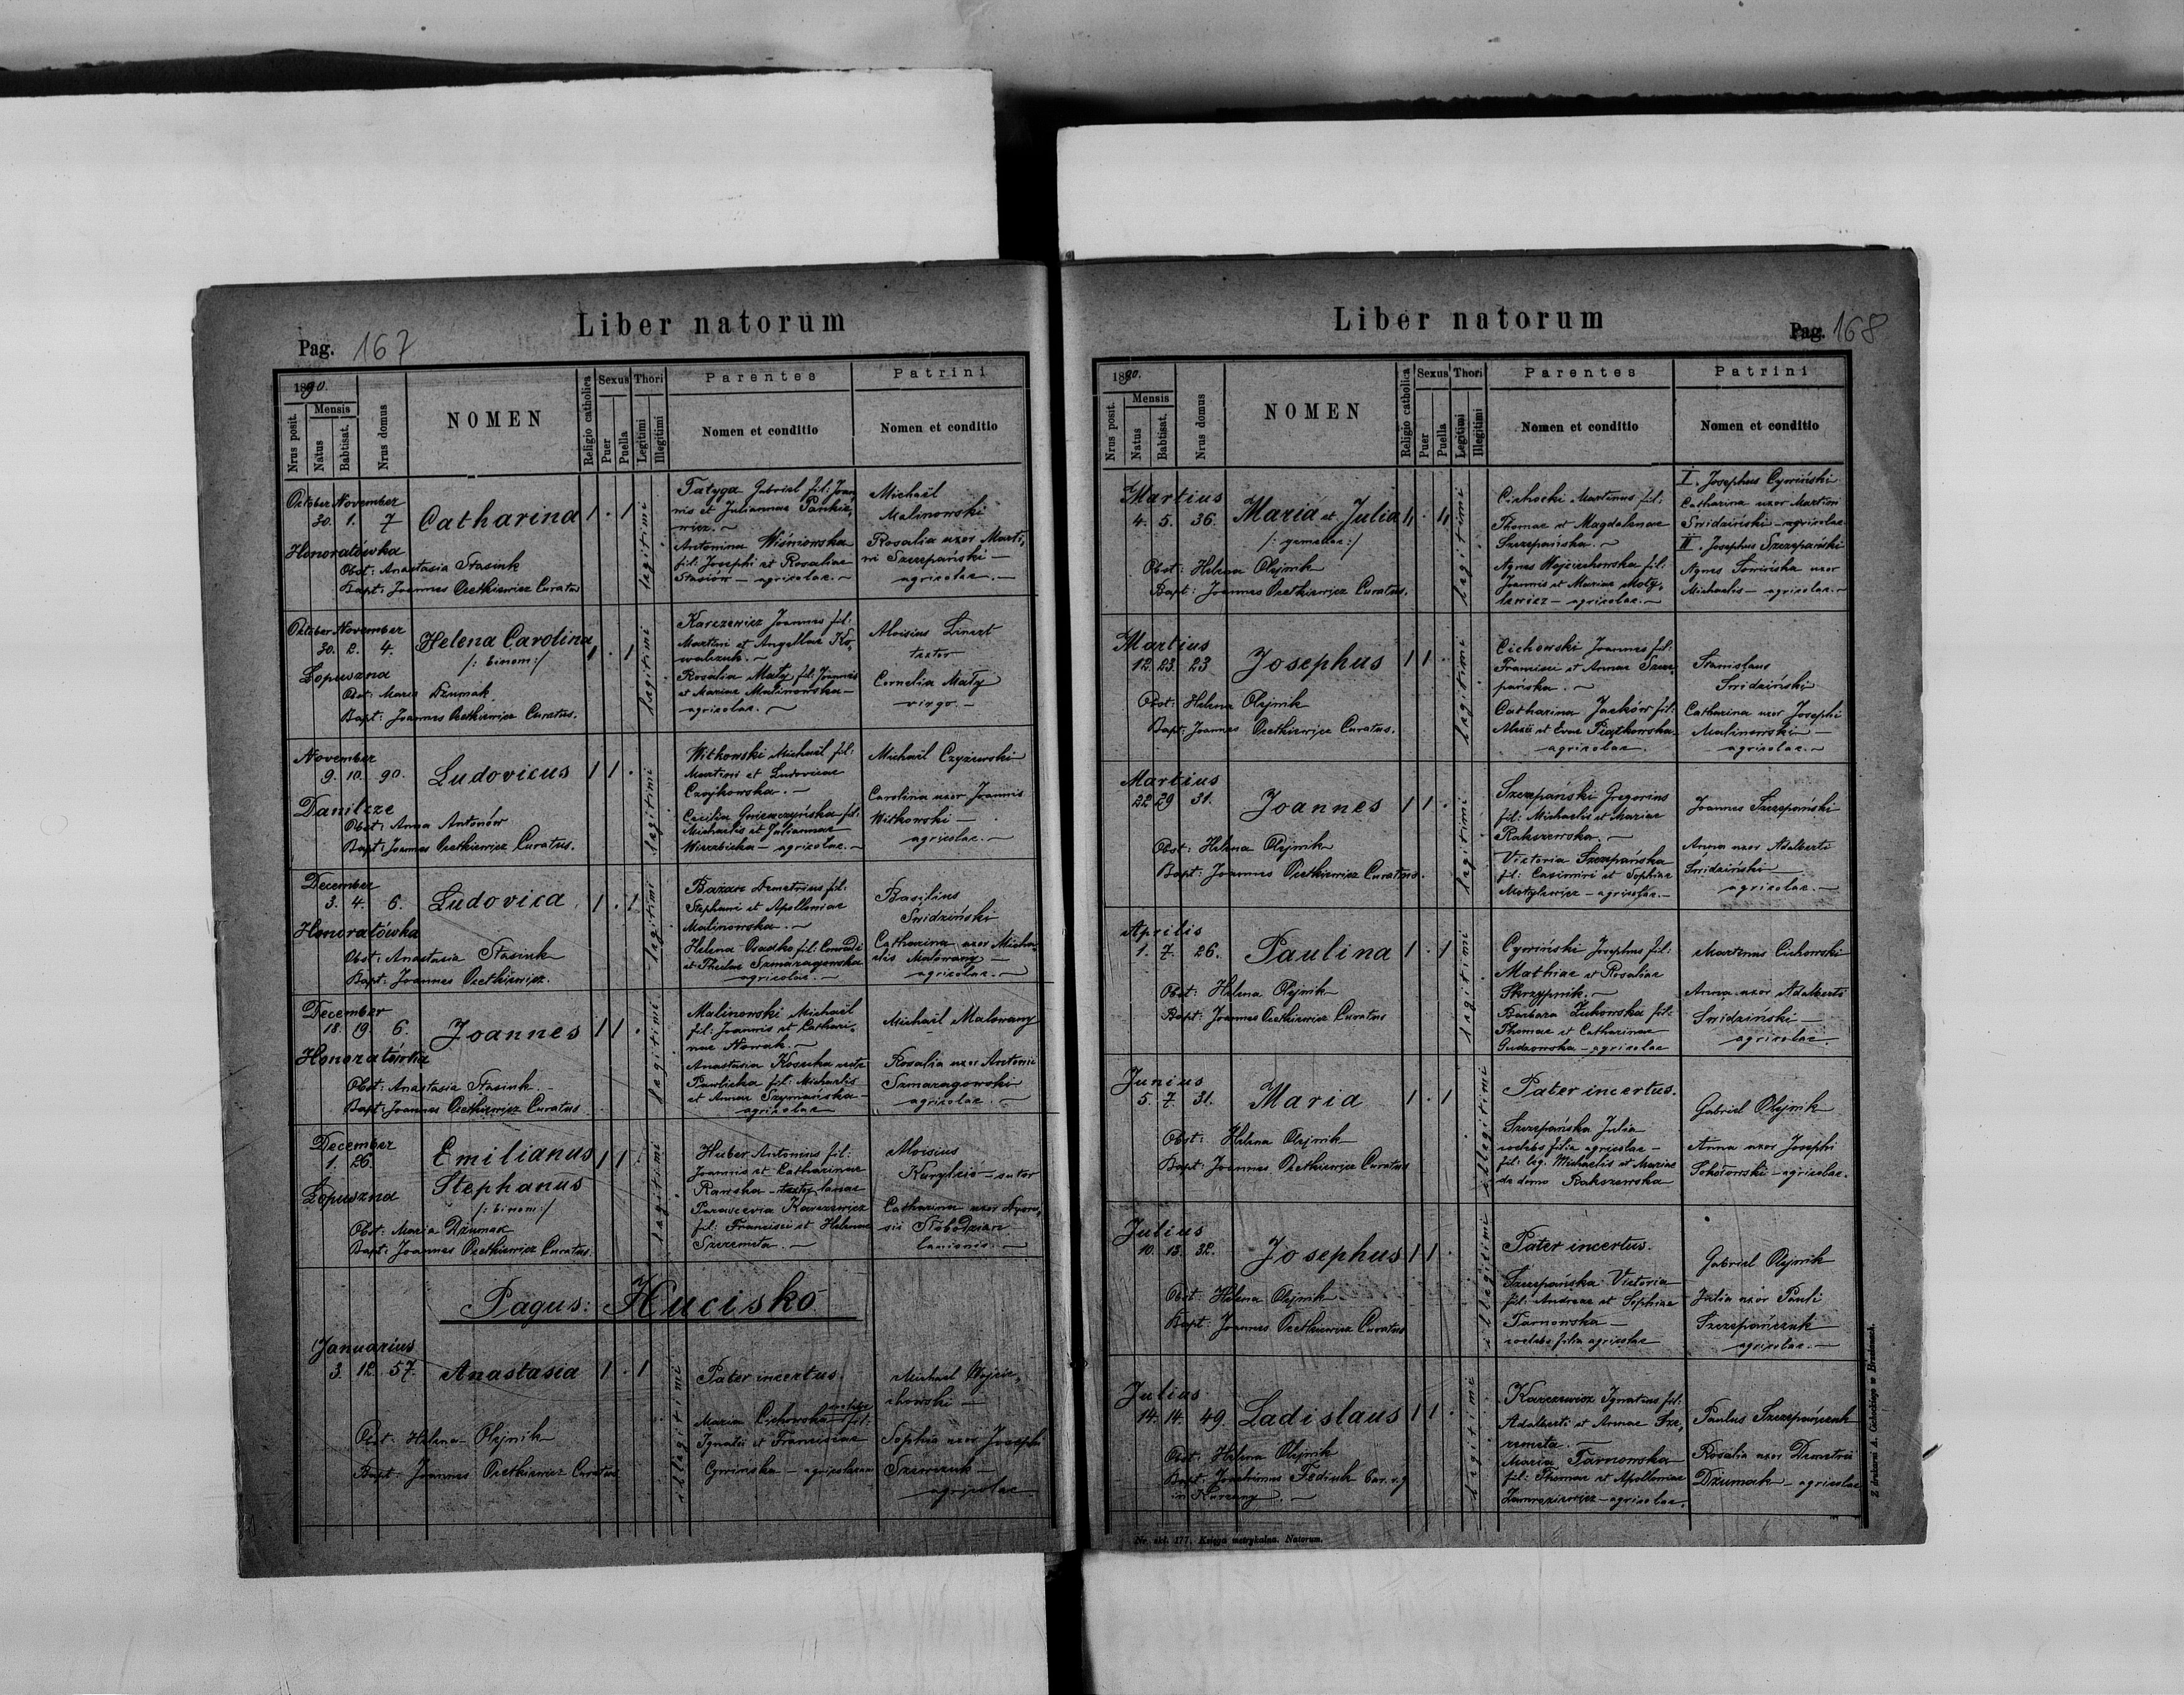 Liber natorum
Pag. 167
1890.
Nrus posit.
Mensis
Natus
Babtisat.
Nrus domus
NOMEN
Religio catholica
Sexus
Puer
Puella
Thori
Legitimi
Illegitimi
Parentes
Nomen et conditio
Patrini
Nomen et conditio
October November
30. 1. 7
Honoratówka
Catharina 1 . 1
Obst: Anastasia Stasiuk
Bapt: Joannes Reetkiewicz Curatus
legitimi
Tatyga Gabriel fil: Joan,
nis et Juliannae Pankie,
wicz. ~
Antonina Wiśniowska
fil: Josephi et Rosaliae
Stasiów — agricolae. ~
Michaël
Malinowski
Rosalia uxor Marti,
ni Szczepański —
agricolae. —
October November
30. 2. 4.
Łopuszna
Helena Carolina 1 . 1
/: binom :/
Obst: Maria Dzumak
Bapt: Joannes Reetkiewicz Curatus.
legitimi
Karczewicz Joannes fil:
Martini et Angellae Ko,
walczuk. ~
Rosalia Mały fil: Joannis
et Mariae Malinowska —
agricolae. ~
Aloisius Linczt
textor
Cornelia Mały
virgo. —
November
9. 10. 90.
Danilcze
Ludovicus 1 1 .
Obst: Anna Antonów
Bapt: Joannes Reetkiewicz Curatus.
legitimi
Witkowski Michaël fil:
Martini et Ludovicae
Czajkowska. ~
Caecilia fil:
Michaelis et Juliannae
Wierzbicka — agricolae. ~
Michaël Czyżewski
Carolina uxor Joannis
Witkowski —
agricolae. ~
December
3. 4. 6.
Honoratówka
Ludovica 1 . 1
Obst: Anastasia Stasiuk
Bapt: Joannes Reetkiewicz.
legitimi
Bazar Demetrius fil:
Stephani et Apolloniae
Malinowska. ~
Helena Osadko fil: Conradi
et Theclae Szmaragowska
agricolae. ~
Basilius
Swidziński
Catharina uxor Micha
elis Malowany —
agricolae. ~
December
18. 19. 6.
Honoratówka
Joannes 1 1 .
Obst: Anastasia Stasiuk. —
Bapt: Joannes Reetkiewicz Curatus
legitimi
Malinowski Michaël
fil: Joannis et Cathari,
nae Nowak. ~
Anastasia Koszuka
Pawlicka fil: Michaelis
et Annae Szymańska —
agricolae
Michaël Malowany
Rosalia uxor Antonii
Szmaragowski
agricolae. ~
December
1. 26.
Łopuszna
Emilianus 1 1
Stephanus
/: binom :/
Obst: Maria Dzumak
Bapt: Joannes Reetkiewicz Curatus.
legitimi
Huber Antonius fil:
Joannis et Catharinae
Rawska lanae
Parascevia Karczewicz
fil: Francisci et Helenae
Szeremeta. ~
Aloisius
Kuryłcio — sutor
Catharina uxor Dyoni,
sii Słobodzian
lanionis. ~
Pagus: Hucisko
Januarius
3. 12. 57.
Anastasia 1 . 1
Obst: Helena Olejnik
Bapt: Joannes Reetkiewicz Curatus
illegitimi
Pater incertus.
Maria Cichowska fil:
Ignatii et Franciscae
Cywińska — agricolarum
Michaël Wojcie,
chowski —
Sophia uxor Josephi
Szewczuk —
agricolae
Liber natorum
Pag. 168
1890.
Nrus posit.
Mensis
Natus
Babtisat.
Nrus domus
NOMEN
Religio catholica
Sexus
Puer
Puella
Thori
Legitimi
Illegitimi
Parentes
Nomen et conditio
Patrini
Nomen et conditio
Martius
4. 5. 36.
Maria et Julia 11 . 11
/: gemellae :/
Obst: Helena Olejnik
Bapt: Joannes Reetkiewicz Curatus.
legitimi
Cichocki Martinus fil:
Thomae et Magdalenae
Szczepańska. ~
Agnes Wojciechowska fil:
Joannis et Mariae Moty,
lewicz — agricolae. ~
I. Josephus Cywiński
Catharina uxor Martini
Swidziński — agricolae
II. Josephus Szczepański
Agnes Sowińska uxor
Michaelis — agricolae. ~
Martius
12. 23. 23
Josephus 1 1 .
Obst: Helena Olejnik
Bapt: Joannes Reetkiewicz Curatus.
legitimi
Cichowski Joannes fil:
Francisci et Annae Szcze,
pańska. ~
Catharina Jacków fil:
Alexii et Evae Piątkowska
agricolae.
Stanislaus
Swidziński
Catharina uxor Josephi
Malinowski —
agricolae. ~
Martius
22 29 31.
Joannes 1 1 .
Obst: Helena Olejnik
Bapt: Joannes Reetkiewicz Curatus.
legitimi
Szczepański Gregorius
fil: Michaelis et Mariae
Rakszewska. ~
Victoria Szczepańska
fil: Casimiri et Sophiae
Motylewicz — agricolae. —
Joannes Szczepański
Anna uxor Adalberti
Swidziński —
agricolae. —
Aprilis
1. 7. 26.
Paulina 1 . 1
Obst: Helena Olejnik
Bapt: Joannes Reetkiewicz Curatus
legitimi
Cywiński Josephus fil:
Mathiae et Rosaliae
Skrzypnik. ~
Barbara Zuhowska fil:
Thomae et Catharinae
Gudzowska — agricolae
Martinus Cichowski
Anna uxor Adalberti
Swidziński —
agricolae.
Junius
5. 7. 31.
Maria 1 . 1
Obst: Helena Olejnik
Bapt: Joannes Reetkiewicz Curatus
illegitimi
Pater incertus.
Szczepańska Julia
coelebs filia agricolae —
fil: leg. Michaelis et Mariae
de domo Rakszewska
Gabriel Olejnik
Anna uxor Josephi
Sokołowski — agricolae.
Julius
10. 13. 32.
Josephus 1 1 .
Obst: Helena Olejnik
Bapt: Joannes Reetkiewicz Curatus
illegitimi
Pater incertus.
Szczepańska Victoria
fil: Andreae et Sophiae
Tarnowska —
coelebs filia agricolae
Gabriel Olejnik
Julia uxor Pauli
Szczepańczuk
agricolae. —
Julius
14. 14. 49.
Ladislaus 1 1 .
Obst: Helena Olejnik
Bapt: Joachimus Fediuk Par. r. g
in Kurzany. ~
legitimi
Karczewicz Ignatius fil:
Adalberti et Annae Sze,
remeta.
Maria Tarnowska
fil: Thomae et Apolloniae
agricolae.
Paulus Szczepańczuk
Rosalia uxor Demetrii
Dżumak — agricolae
Nr. skł. 177. Księga metrykalna. Natorum.
Z drukarni A. Cichockiego w Brzeżanach.